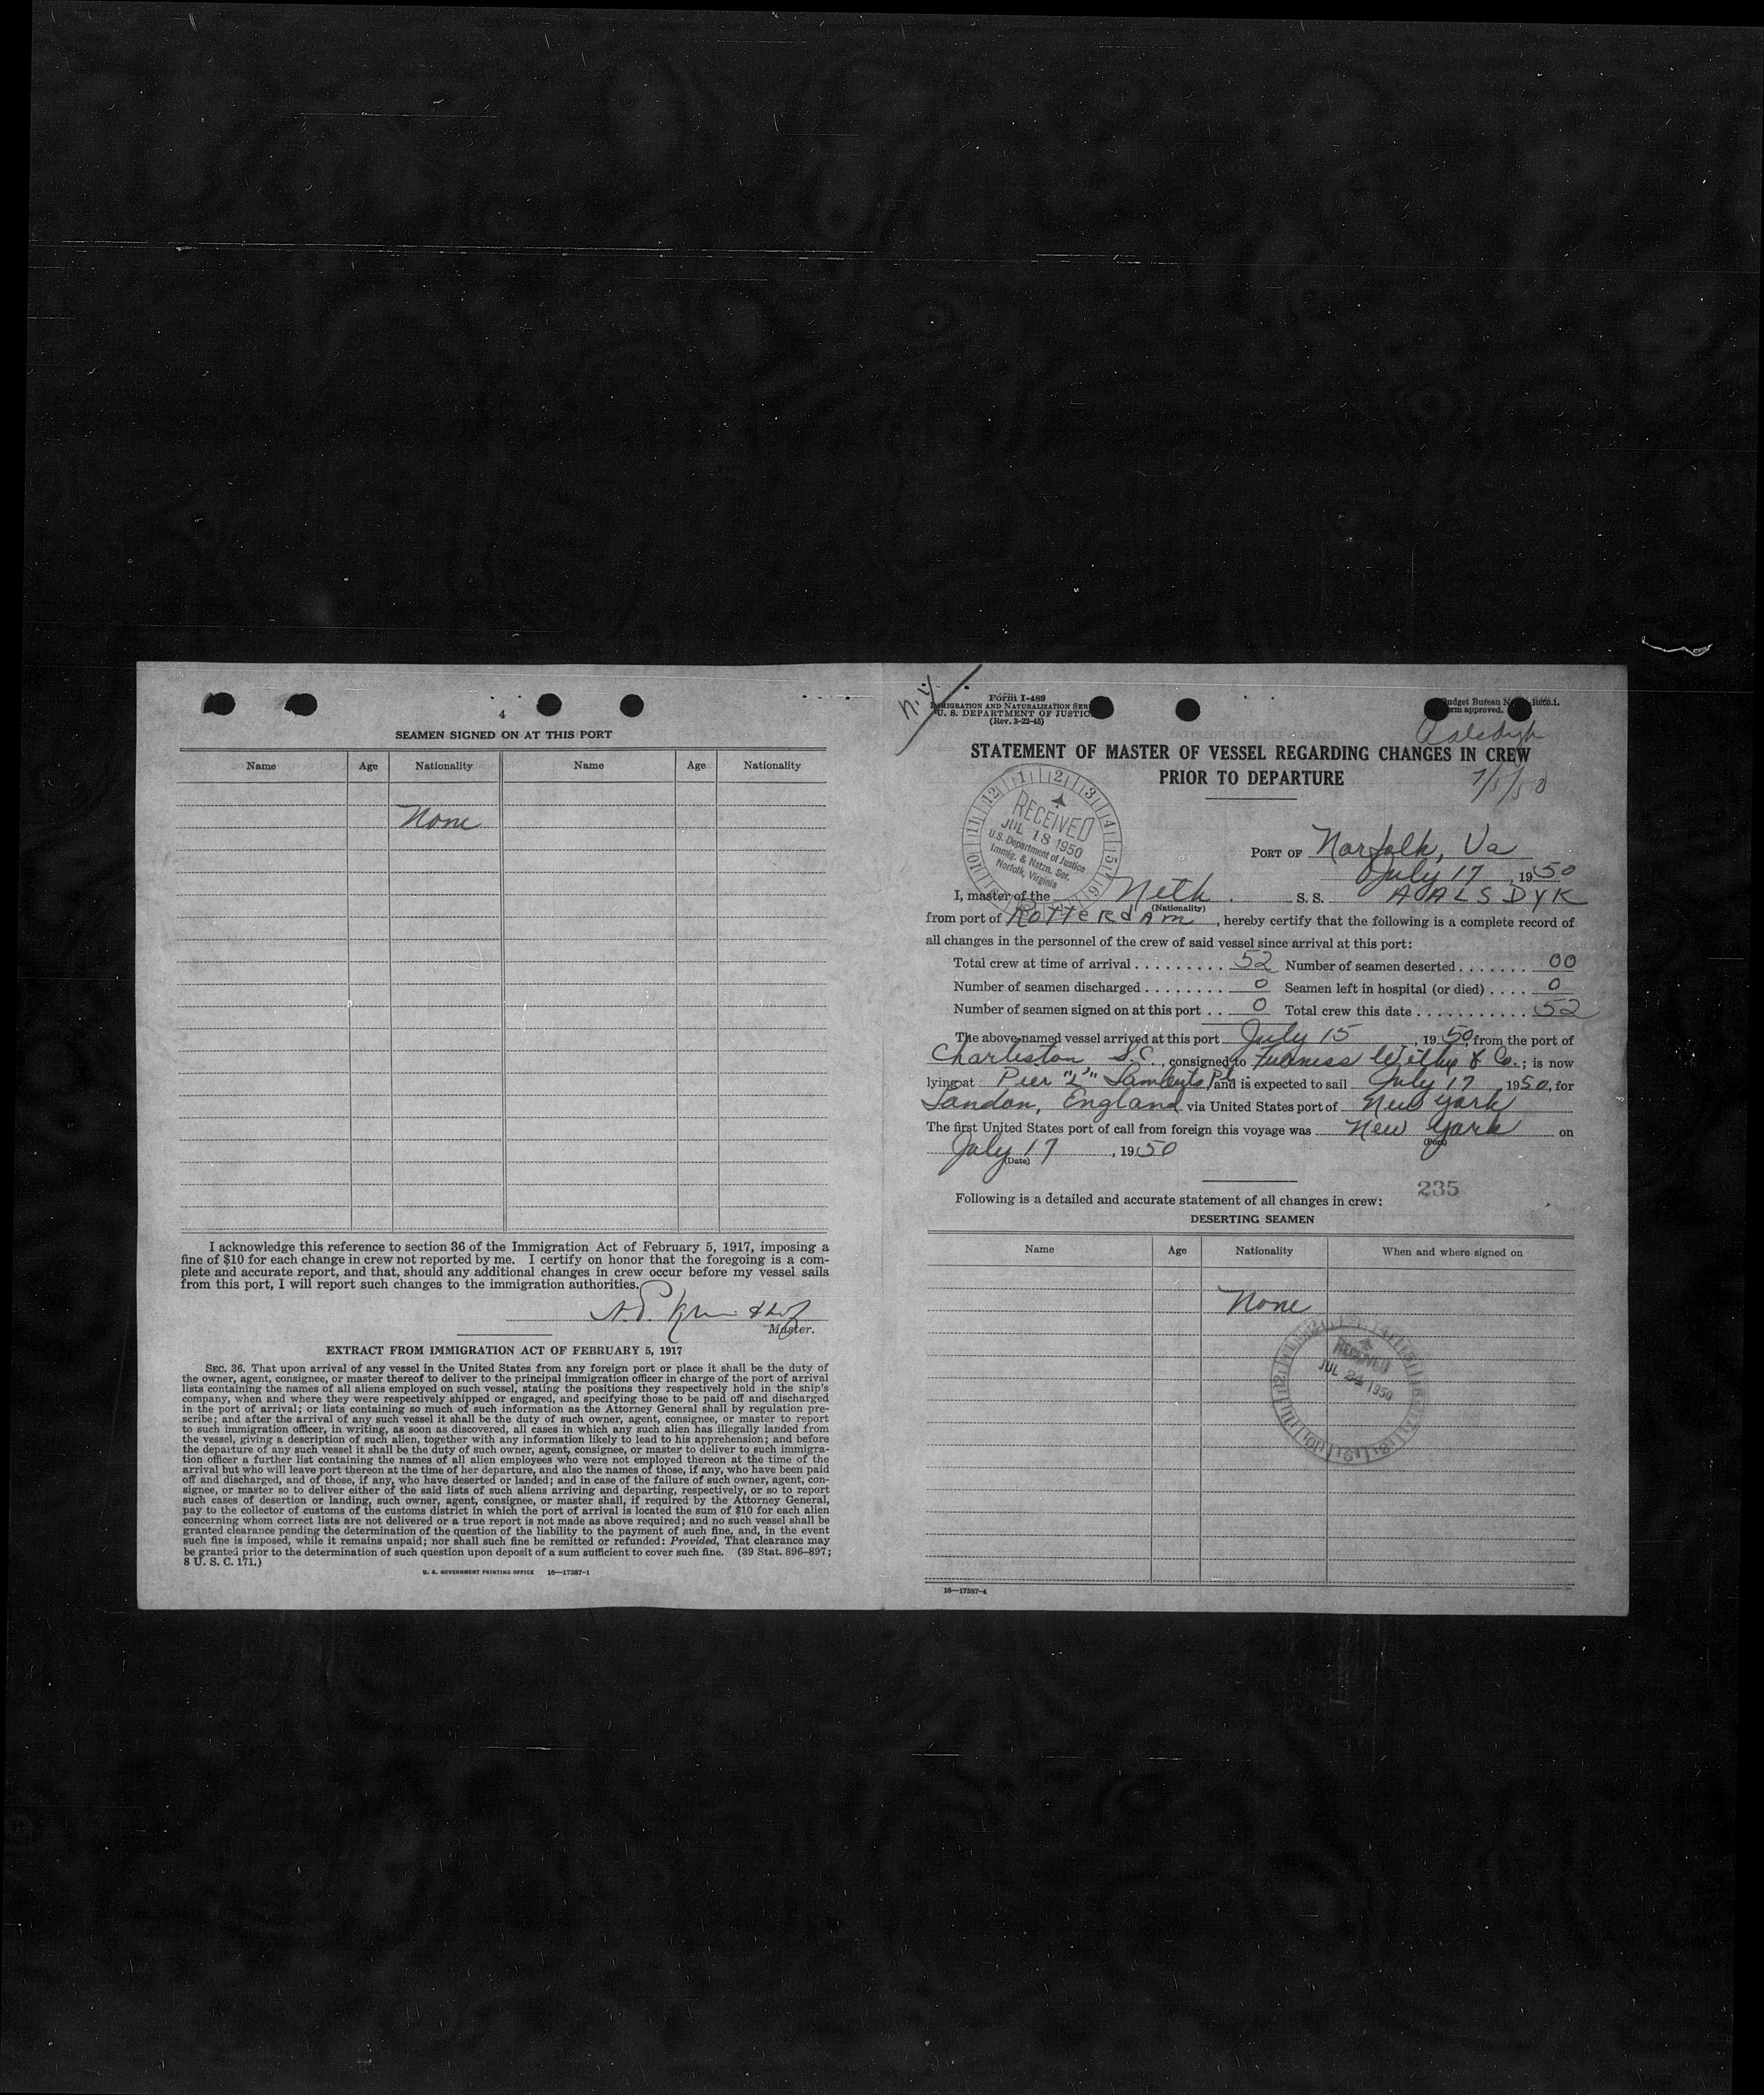 4
SEAMEN SIGNED ON AT THIS PORT
Name Age Nationality Name Age Nationality
None
I acknowledge this reference to section 36 of the Immigration Act of February 5, 1917, imposing a
fine of $10 for each change in crew not reported by me. I certify on honor that the foregoing is a com-
plete and accurate report, and that, should any additional changes in crew occur before my vessel sails
from this port, I will report such changes to the immigration authorities.
Master.
EXTRACT FROM IMMIGRATION ACT OF FEBRUARY 5, 1917
SEC. 36. That upon arrival of any vessel in the United States from any foreign port or place it shall be the duty of
the owner, agent, consignee, or master thereof to deliver to the principal immigration officer in charge of the port of arrival
lists containing the names of all aliens employed on such vessel, stating the positions they respectively hold in the ship's
company, when and where they were respectively shipped or engaged, and specifying those to be paid off and discharged
in the port of arrival; or lists containing so much of such information as the Attorney General shall by regulation pre-
scribe; and after the arrival of any such vessel it shall be the duty of such owner, agent, consignee, or master to report
to such immigration officer, in writing, as soon as discovered, all cases in which any such alien has illegally landed from
the vessel, giving a description of such alien, together with any information likely to lead to his apprehension; and before
the departure of any such vessel it shall be the duty of such owner, agent, consignee, or master to deliver to such immigra-
tion officer a further list containing the names of all alien employees who were not employed thereon at the time of the
arrival but who will leave port thereon at the time of her departure, and also the names of those, if any, who have been paid
off and discharged, and of those, if any, who have deserted or landed; and in case of the failure of such owner, agent, con-
signee, or master so to deliver either of the said lists of such aliens arriving and departing, respectively, or so to report
such cases of desertion or landing, such owner, agent, consignee, or master shall, if required by the Attorney General,
pay to the collector of customs of the customs district in which the port of arrival is located the sum of $10 for each alien
concerning whom correct lists are not delivered or a true report is not made as above required; and no such vessel shall be
granted clearance pending the determination of the question of the liability to the payment of such fine, and, in the event
such fine is imposed, while it remains unpaid; nor shall such fine be remitted or refunded: Provided, That clearance may
be granted prior to the determination of such question upon deposit of a sum sufficient to cover such fine. (39 Stat. 896-897;
8 U. S. C. 171.)
U. S. GOVERNMENT PRINTING OFFICE 16—17387-1
n.y.
Form I-489
IMMIGRATION AND NATURALIZATION SER
U. S. DEPARTMENT OF JUSTIC
(Rev. 3-22-45)
Budget Bureau N R050.1.
rm approved.
Aalsdyk
STATEMENT OF MASTER OF VESSEL REGARDING CHANGES IN CREW
PRIOR TO DEPARTURE
RECEIVED
JUL 18 1950
U.S. Department of Justice
Immig. & Natzn. Ser.
Norfolk, Virginia
PORT OF Norfolk, Va
July 17, 1950
I, master of the Neth. S. S. AALSDYK
(Nationality)
from port of Rotterdam, hereby certify that the following is a complete record of
all changes in the personnel of the crew of said vessel since arrival at this port:
Total crew at time of arrival 52 Number of seamen deserted 00
Number of seamen discharged 0 Seamen left in hospital (or died) 0
Number of seamen signed on at this port 0 Total crew this date 52
The above-named vessel arrived at this port July 15, 1950, from the port of
Charleston S.C., consigned to Furness Withy & Co.; is now
lying at Pier "L" Lamberts Pt and is expected to sail July 17, 1950, for
London, England via United States port of New York
The first United States port of call from foreign this voyage was New York on
(Port)
July 17, 1950
(Date)
235
Following is a detailed and accurate statement of all changes in crew:
DESERTING SEAMEN
Name Age Nationality When and where signed on
None
RECEIVED
JUL 24 1950
16—17387-4